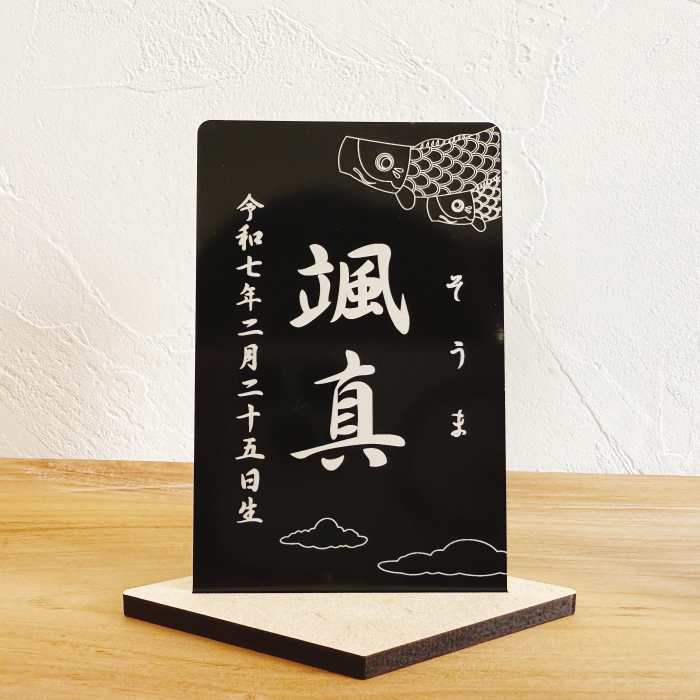 そうま
颯真
令和七年二月二十五日生